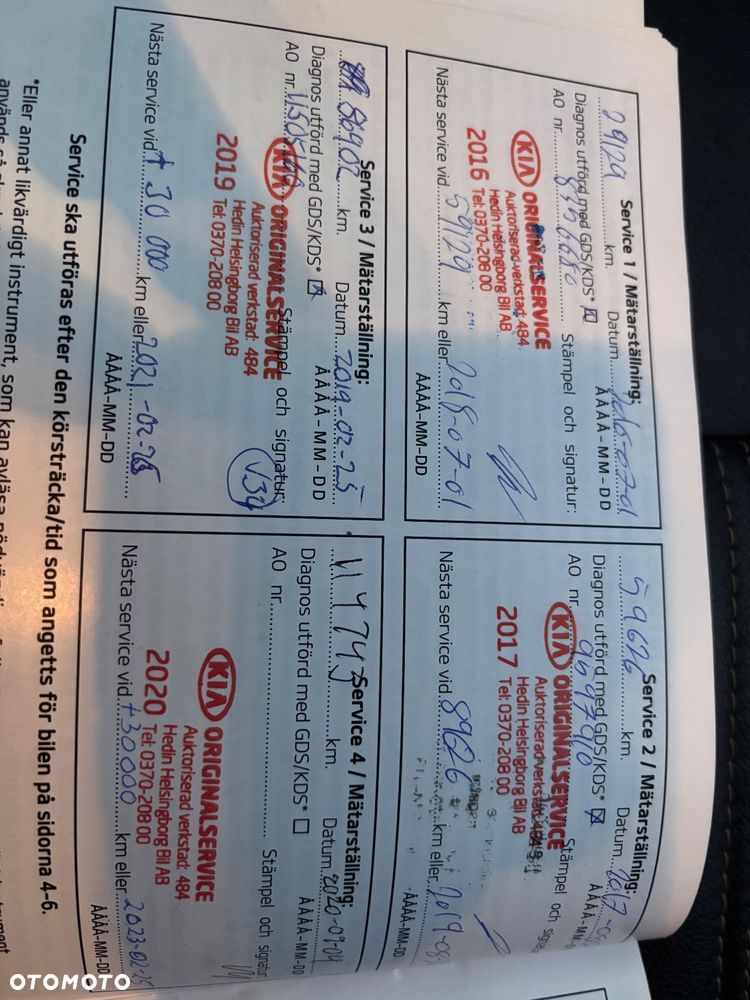 Service 1 / Mätarställning:
29129 km. Datum
ÅÅÅÅ-MM-DD
Diagnos utförd med GDS/KDS* ☒
AO nr. Stämpel och signatur:
KIA ORIGINALSERVICE
Auktoriserad verkstad: 484
Hedin Helsingborg Bil AB
2016 Tel: 0370-208 00
Nästa service vid 59129 km eller 2018-07-01
ÅÅÅÅ-MM-DD
Service 2 / Mätarställning:
59626 km. Datum 2017
ÅÅÅÅ-MM
Diagnos utförd med GDS/KDS* ☒
AO nr. 9597910 Stämpel och
KIA ORIGINALSERVICE
Auktoriserad verkstad: 484
Hedin Helsingborg Bil AB
2017 Tel: 0370-208 00
Nästa service vid 89626 km eller 2019-08
ÅÅÅÅ-MM-DD
Service 3 / Mätarställning:
86902 km. Datum 2019-02-25
ÅÅÅÅ-MM-DD
Diagnos utförd med GDS/KDS* ☒
AO nr. Stämpel och signatur:
KIA ORIGINALSERVICE
V34
Auktoriserad verkstad: 484
Hedin Helsingborg Bil AB
2019 Tel: 0370-208 00
Nästa service vid + 30 000 km eller 2021-02-25
ÅÅÅÅ-MM-DD
Service 4 / Mätarställning:
114743 km. Datum 2020-09-04
ÅÅÅÅ-MM-DD
Diagnos utförd med GDS/KDS* ☐
AO nr. Stämpel och signatur
KIA ORIGINALSERVICE
Auktoriserad verkstad: 484
Hedin Helsingborg Bil AB
2020 Tel: 0370-208 00
Nästa service vid +30000 km eller
ÅÅÅÅ-MM-DD
Service ska utföras efter den körsträcka/tid som angetts för bilen på sidorna 4-6.
*Eller annat likvärdigt instrument, som kan avläsa
OTOMOTO